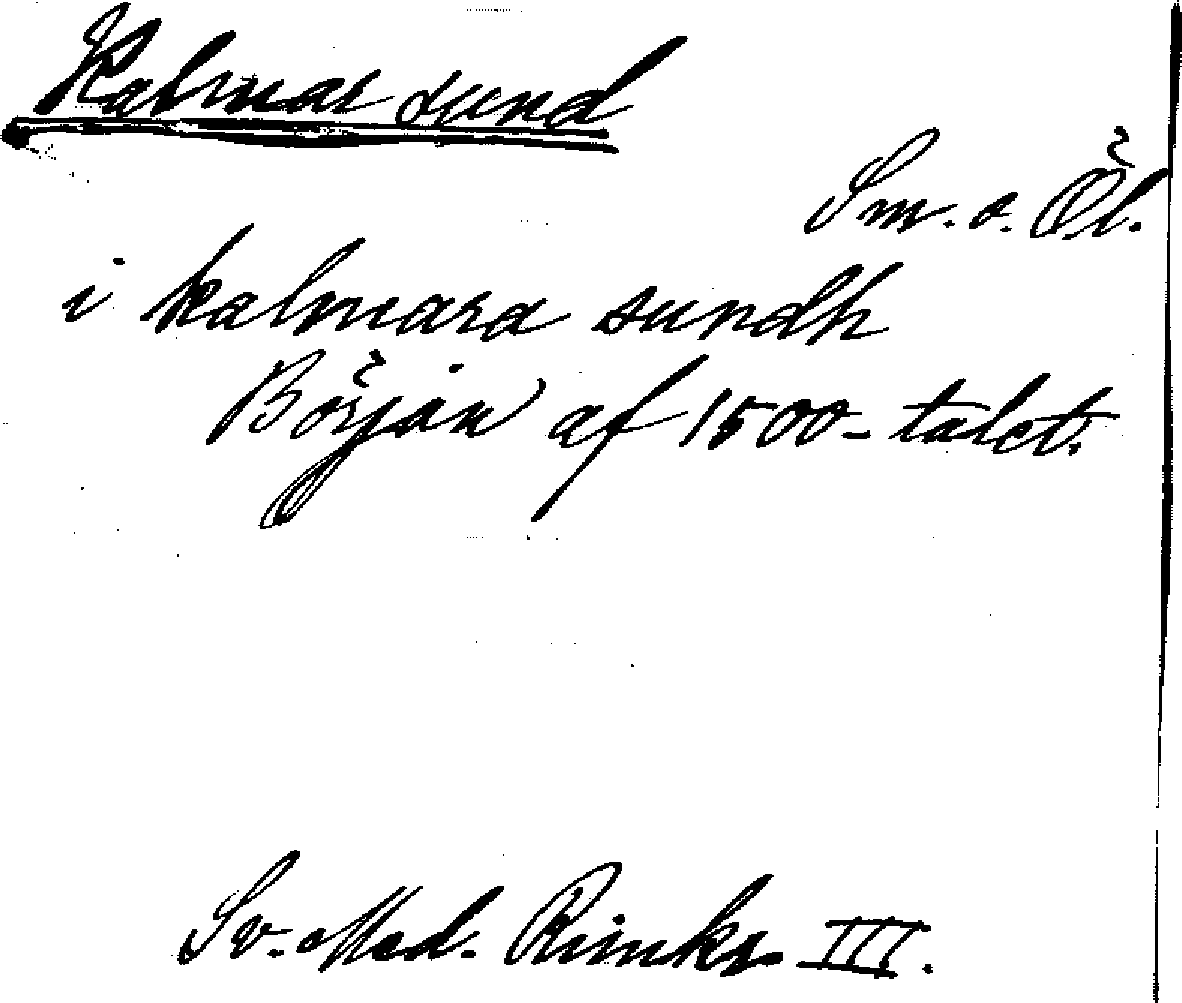 Kalmar sund
Sm. o. Öl.
i kalmara sundh
Början af 1500-talet.
Sv. Med. Rimkr. III.